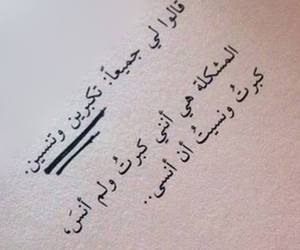 قالوا لي جميعاً: تكبرين وتنسين.
المشكلة هي أنني كبرتُ ولم أنسَ،
كبرتُ ونسيتُ أن أنسى..